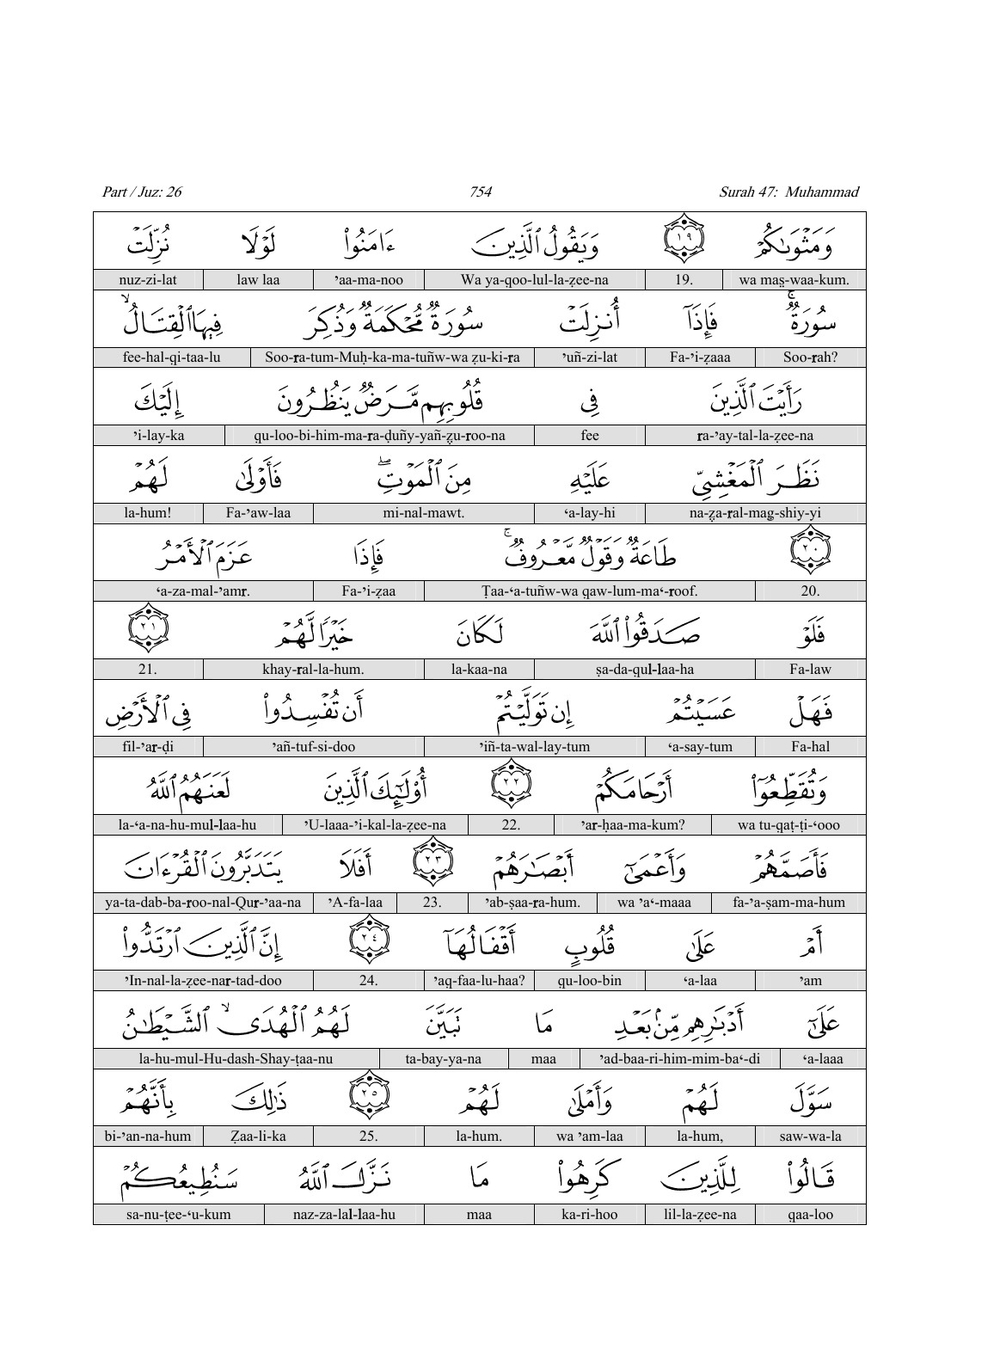 Part / Juz: 26 754 Surah 47: Muhammad
وَمَثْوَىٰكُمْ ١٩ وَيَقُولُ ٱلَّذِينَ ءَامَنُوا۟ لَوْلَا نُزِّلَتْ
wa maṣ-waa-kum. 19. Wa ya-qoo-lul-la-ẓee-na ’aa-ma-noo law laa nuz-zi-lat
سُورَةٌ ۖ فَإِذَآ أُنزِلَتْ سُورَةٌ مُّحْكَمَةٌ وَذُكِرَ فِيهَا ٱلْقِتَالُ ۙ
Soo-rah? Fa-’i-ẓaaa ’uñ-zi-lat Soo-ra-tum-Muḥ-ka-ma-tuñw-wa ẓu-ki-ra fee-hal-qi-taa-lu
رَأَيْتَ ٱلَّذِينَ فِى قُلُوبِهِم مَّرَضٌ يَنظُرُونَ إِلَيْكَ
ra-’ay-tal-la-ẓee-na fee qu-loo-bi-him-ma-ra-ḍuñy-yañ-ẓu-roo-na ’i-lay-ka
نَظَرَ ٱلْمَغْشِىِّ عَلَيْهِ مِنَ ٱلْمَوْتِ ۖ فَأَوْلَىٰ لَهُمْ
na-ẓa-ral-mag-shiy-yi ‘a-lay-hi mi-nal-mawt. Fa-’aw-laa la-hum!
٢٠ طَاعَةٌ وَقَوْلٌ مَّعْرُوفٌ ۚ فَإِذَا عَزَمَ ٱلْأَمْرُ
20. Ṭaa-‘a-tuñw-wa qaw-lum-ma‘-roof. Fa-’i-ẓaa ‘a-za-mal-’amr.
فَلَوْ صَدَقُوا۟ ٱللَّهَ لَكَانَ خَيْرًا لَّهُمْ ٢١
Fa-law ṣa-da-qul-laa-ha la-kaa-na khay-ral-la-hum. 21.
فَهَلْ عَسَيْتُمْ إِن تَوَلَّيْتُمْ أَن تُفْسِدُوا۟ فِى ٱلْأَرْضِ
Fa-hal ‘a-say-tum ’iñ-ta-wal-lay-tum ’añ-tuf-si-doo fil-’ar-ḍi
وَتُقَطِّعُوٓا۟ أَرْحَامَكُمْ ٢٢ أُو۟لَٰٓئِكَ ٱلَّذِينَ لَعَنَهُمُ ٱللَّهُ
wa tu-qaṭ-ṭi-‘ooo ’ar-ḥaa-ma-kum? 22. ’U-laaa-’i-kal-la-ẓee-na la-‘a-na-hu-mul-laa-hu
فَأَصَمَّهُمْ وَأَعْمَىٰٓ أَبْصَٰرَهُمْ ٢٣ أَفَلَا يَتَدَبَّرُونَ ٱلْقُرْءَانَ
fa-’a-ṣam-ma-hum wa ’a‘-maaa ’ab-ṣaa-ra-hum. 23. ’A-fa-laa ya-ta-dab-ba-roo-nal-Qur-’aa-na
أَمْ عَلَىٰ قُلُوبٍ أَقْفَالُهَآ ٢٤ إِنَّ ٱلَّذِينَ ٱرْتَدُّوا۟
’am ‘a-laa qu-loo-bin ’aq-faa-lu-haa? 24. ’In-nal-la-ẓee-nar-tad-doo
عَلَىٰٓ أَدْبَٰرِهِم مِّنۢ بَعْدِ مَا تَبَيَّنَ لَهُمُ ٱلْهُدَى ۙ ٱلشَّيْطَٰنُ
‘a-laaa ’ad-baa-ri-him-mim-ba‘-di maa ta-bay-ya-na la-hu-mul-Hu-dash-Shay-ṭaa-nu
سَوَّلَ لَهُمْ وَأَمْلَىٰ لَهُمْ ٢٥ ذَٰلِكَ بِأَنَّهُمْ
saw-wa-la la-hum, wa ’am-laa la-hum. 25. Ẓaa-li-ka bi-’an-na-hum
قَالُوا۟ لِلَّذِينَ كَرِهُوا۟ مَا نَزَّلَ ٱللَّهُ سَنُطِيعُكُمْ
qaa-loo lil-la-ẓee-na ka-ri-hoo maa naz-za-lal-laa-hu sa-nu-ṭee-‘u-kum